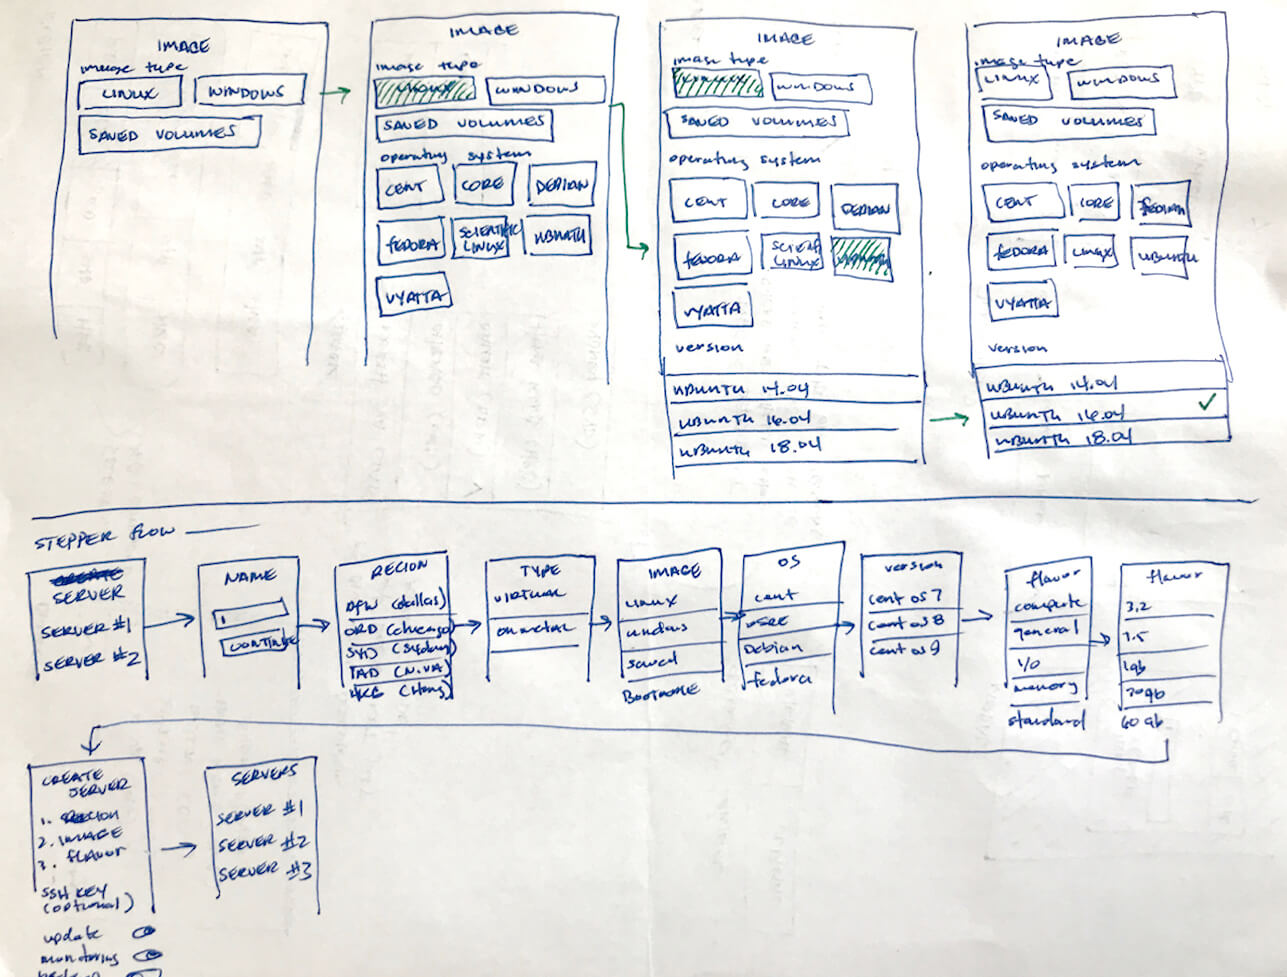 IMAGE
image type
LINUX WINDOWS
SAVED VOLUMES
IMAGE
image type
LINUX WINDOWS
SAVED VOLUMES
operating system
CENT CORE DEBIAN
FEDORA SCIENTIFIC LINUX UBUNTU
VYATTA
IMAGE
image type
WINDOWS
SAVED VOLUMES
operating system
CENT CORE DEBIAN
FEDORA SCIENT LINUX
VYATTA
version
UBUNTU 14.04
UBUNTU 16.04
UBUNTU 18.04
IMAGE
image type
LINUX WINDOWS
SAVED VOLUMES
operating system
CENT CORE
FEDORA LINUX UBUNTU
VYATTA
version
UBUNTU 14.04
UBUNTU 16.04 ✓
UBUNTU 18.04
STEPPER FLOW
CREATE
SERVER
SERVER #1
SERVER #2
NAME
CONTINUE
REGION
DFW (dallas)
ORD (chicago)
SYD (Sydney)
IAD (N.VA)
HKG (Hong)
TYPE
VIRTUAL
onmetal
IMAGE
LINUX
windows
saved
OS
cent
core
Debian
fedora
version
cent os 7
cent os 8
cent os 9
flavor
compute
general
I/O
memory
standard
flavor
3.2
7.5
60 gb
CREATE
SERVER
1. REGION
2. IMAGE
3. FLAVOR
SSH KEY
(optional)
update
monitoring
SERVERS
SERVER #1
SERVER #2
SERVER #3